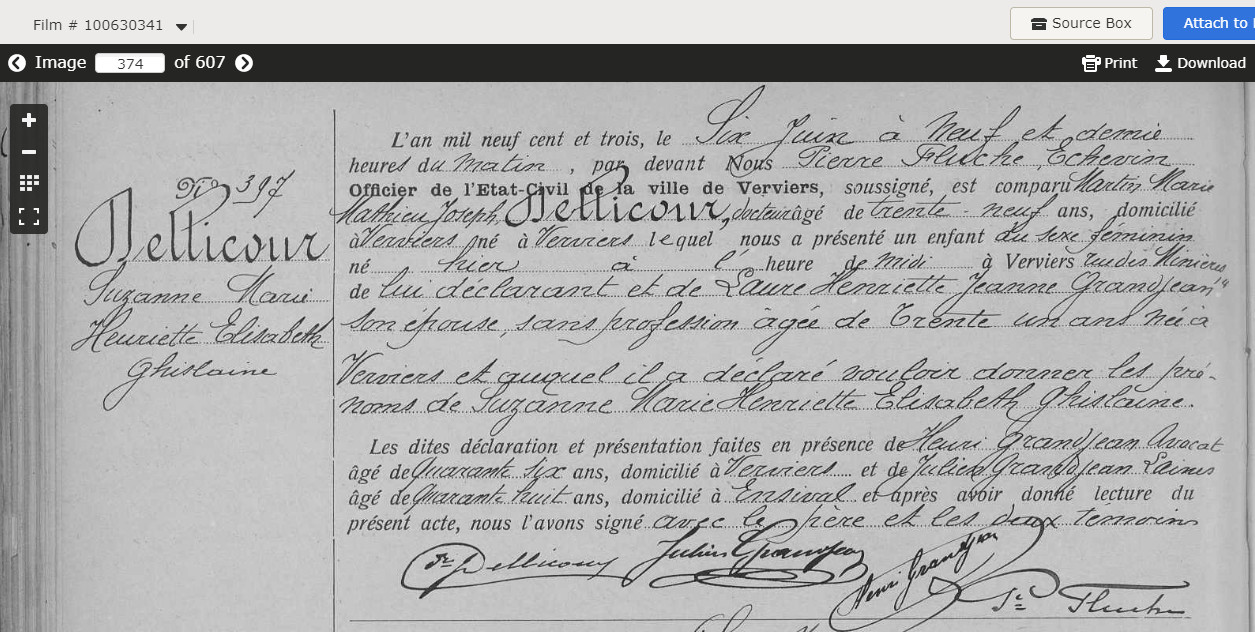 Film # 100630341
Source Box
Attach to
Image 374 of 607
Print
Download
N° 397
Delticour
Suzanne Marie
Henriette Elisabeth
Ghislaine
L'an mil neuf cent et trois, le Six Juin à Neuf et demie
heures du matin, par devant Nous Pierre Fluche, Echevin
Officier de l'Etat-Civil de la ville de Verviers, soussigné, est comparu Martin Marie
Mathieu Joseph Delticour, docteur âgé de trente-neuf ans, domicilié
à Verviers né à Verviers lequel nous a présenté un enfant du sexe féminin
né hier à l' heure de midi à Verviers rue des Minières
de lui déclarant et de Laure Henriette Jeanne Grandjean
son épouse, sans profession âgée de Trente un ans née à
Verviers et auquel il a déclaré vouloir donner les pré-
noms de Suzanne Marie Henriette Elisabeth Ghislaine.
Les dites déclaration et présentation faites en présence de Henri Grandjean Avocat
âgé de Quarante six ans, domicilié à Verviers et de Julien Grandjean Laines
âgé de Quarante huit ans, domicilié à Ensival et après avoir donné lecture du
présent acte, nous l'avons signé avec le père et les deux temoins
Dr Delticour Julien Grandjean Henri Grandjean Pre Fluche